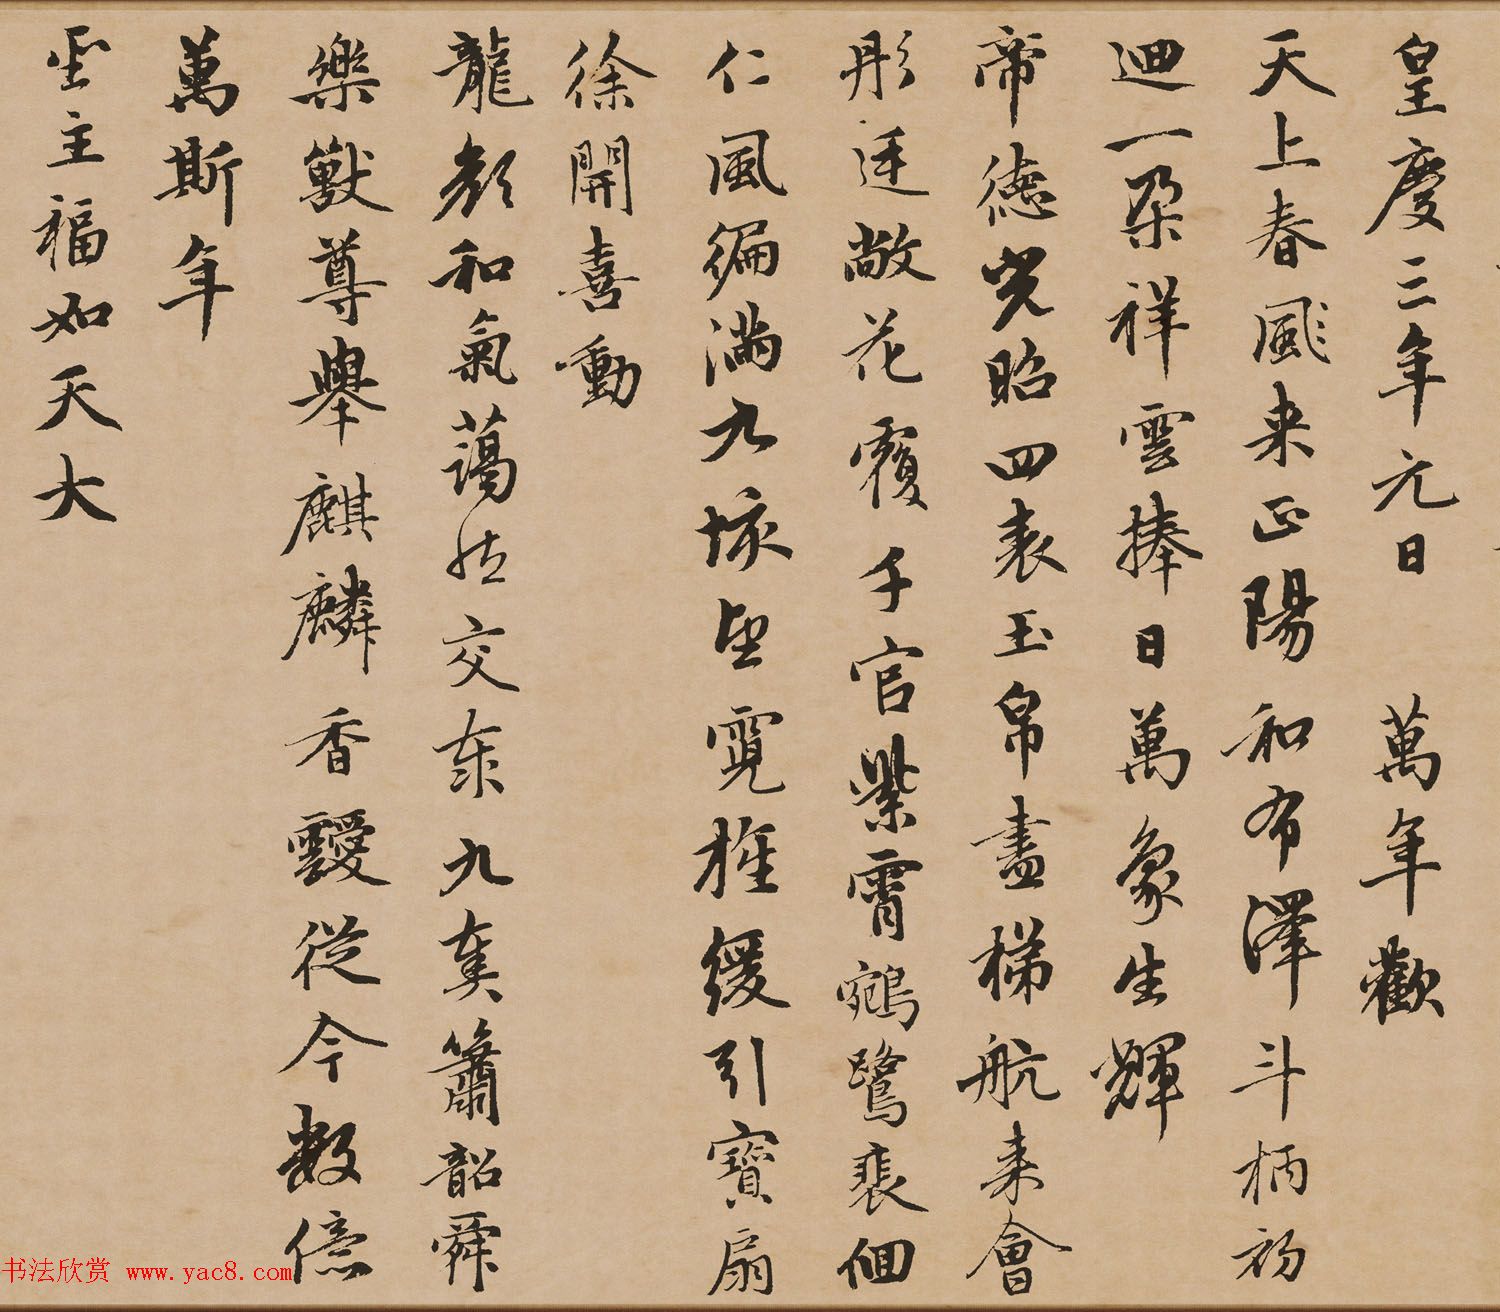 皇慶三年元日　萬年歡
天上春風来正陽和布澤斗柄初
迴一朶祥雲捧日萬象生輝
帝德光昭四表玉帛盡梯航来會
彤廷敞花覆千官紫霄鵷鷺裴佪
仁風徧滿九垓望霓旌緩引寶扇
徐開喜動
龍顔和氣藹然交泰九奏簫韶舜
樂獸尊舉麒麟香靉從今數億
萬斯年
聖主福如天大
书法欣赏 www.yac8.com